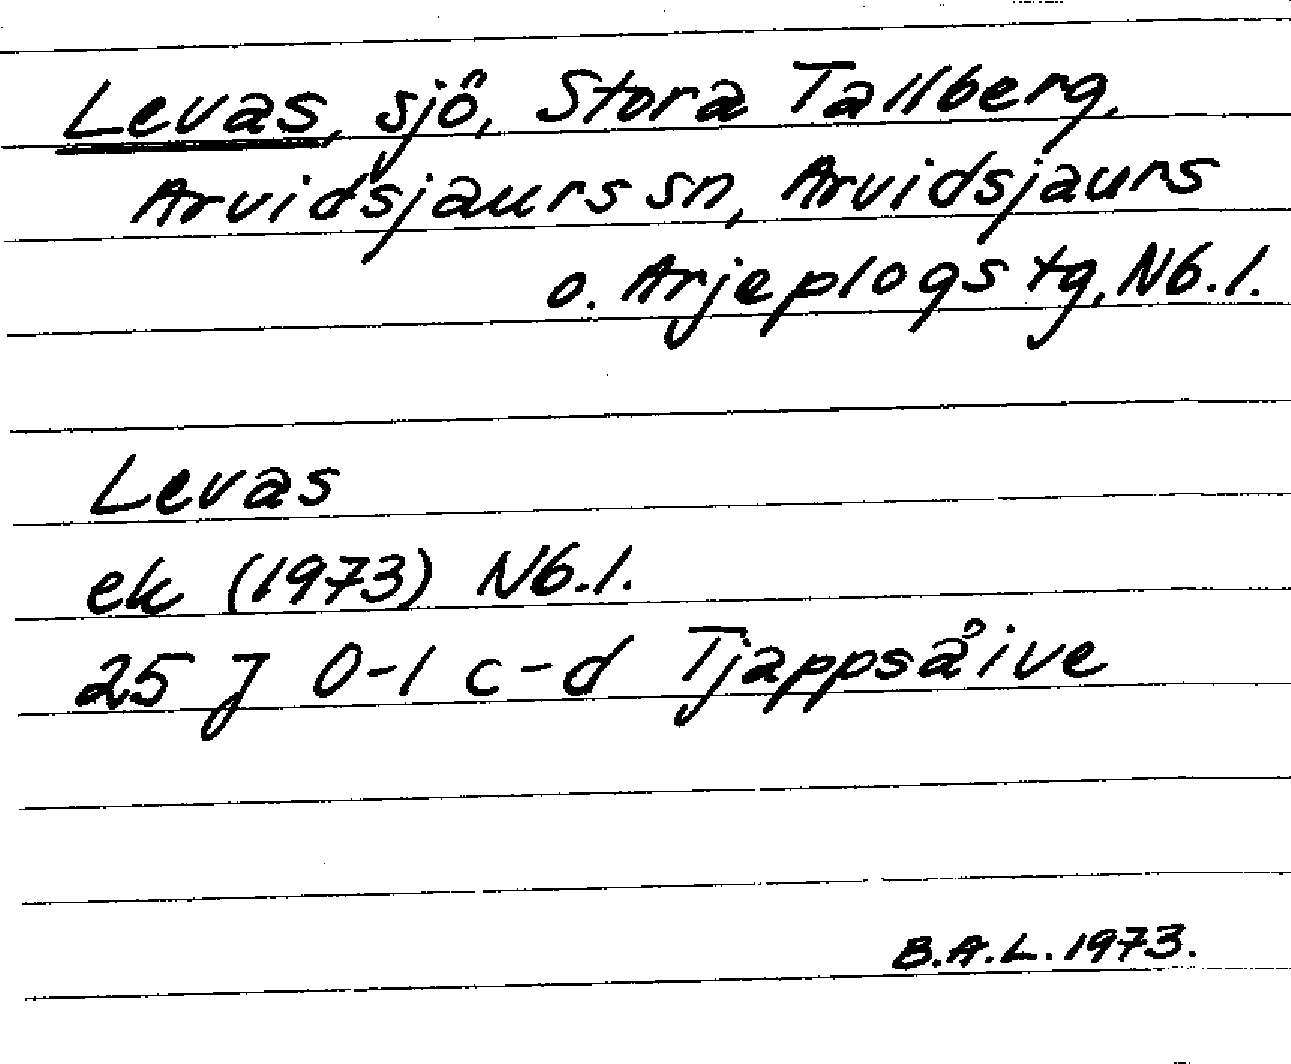 Levas, sjö, Stora Tallberg,
Arvidsjaurs sn, Arvidsjaurs
o. Arjeplogs tg, Nb.l.
Levas
ek (1973) Nb.l.
25 J 0-1 c-d Tjappsåive
B.A.L. 1973.